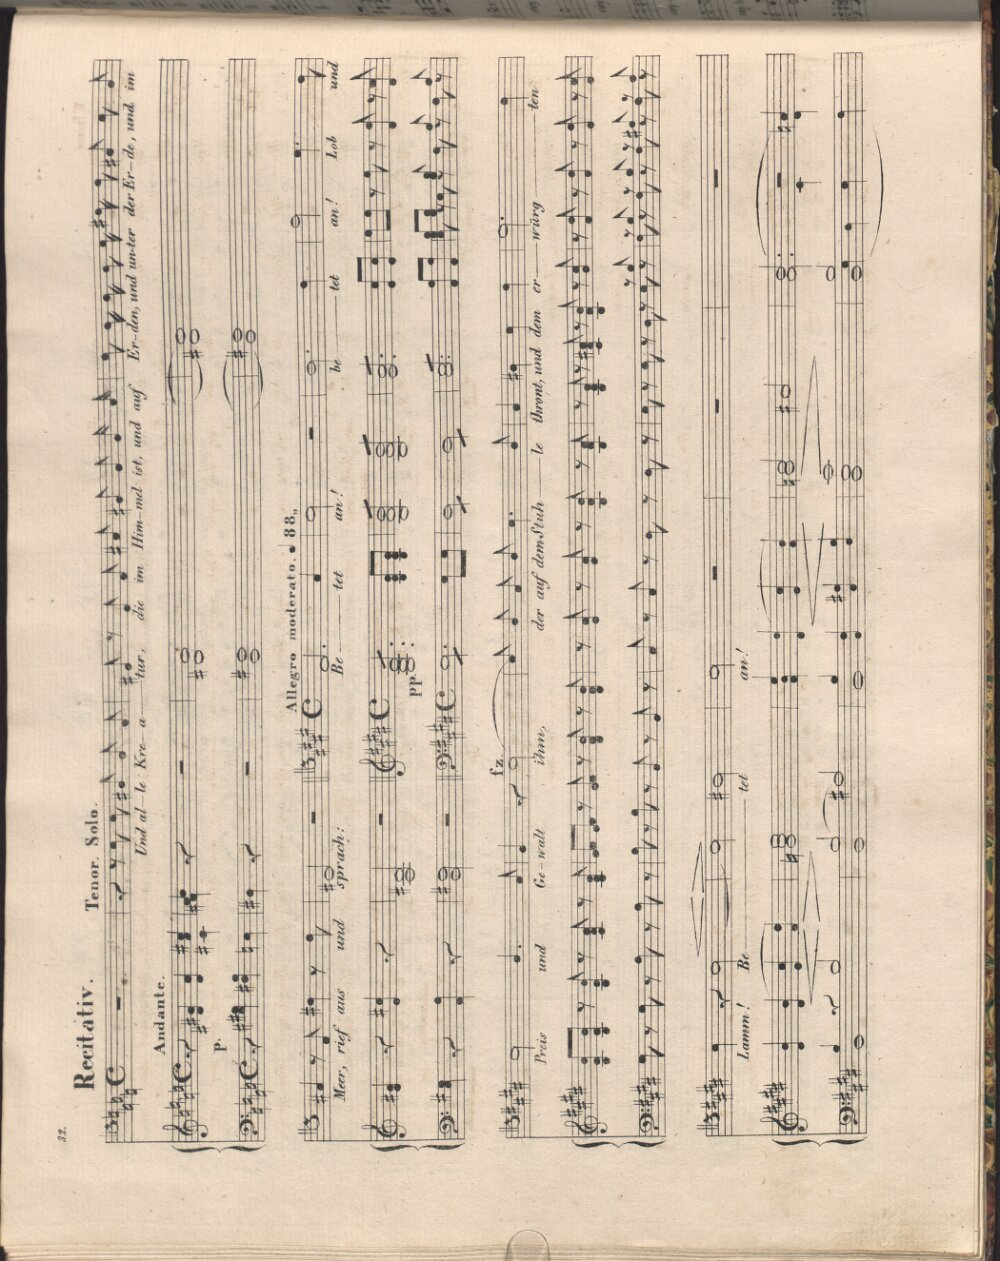 32.
Recitativ. Tenor. Solo.
Und al-le Kre-a-tur, die im Him-mel ist, und auf Er-den, und un-ter der Er-de, und im
Andante.
p.
Meer, rief aus und sprach:
Allegro moderato. 88,,
Be-tet an! be-tet an! Lob und
pp.
fz.
Preis und Ge-walt ihm, der auf dem Stuh-le thront, und dem er-würg-ten
Lamm! Be-tet an!